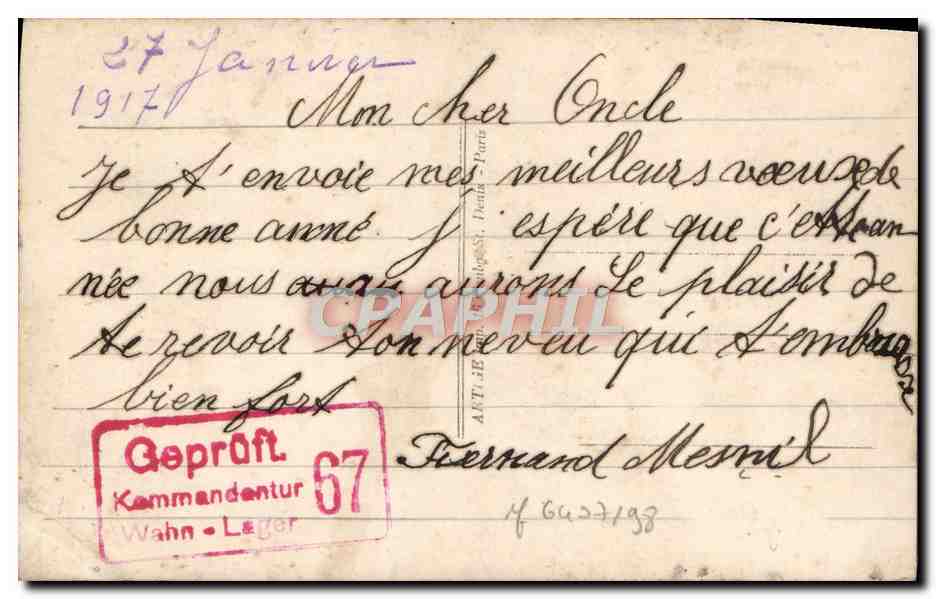 27 Janvier
1917
Mon cher Oncle
Je t'envoie mes meilleurs voeux de
bonne anné. J'espére que c'ette an-
née nous aurons le plaisir de
te revoir ton neveu qui t'embrasse
bien fort
Fernand Mesnil
Geprüft.
Kommandantur
Wahn - Lager
67
CPAPHIL
St. Denis - Paris